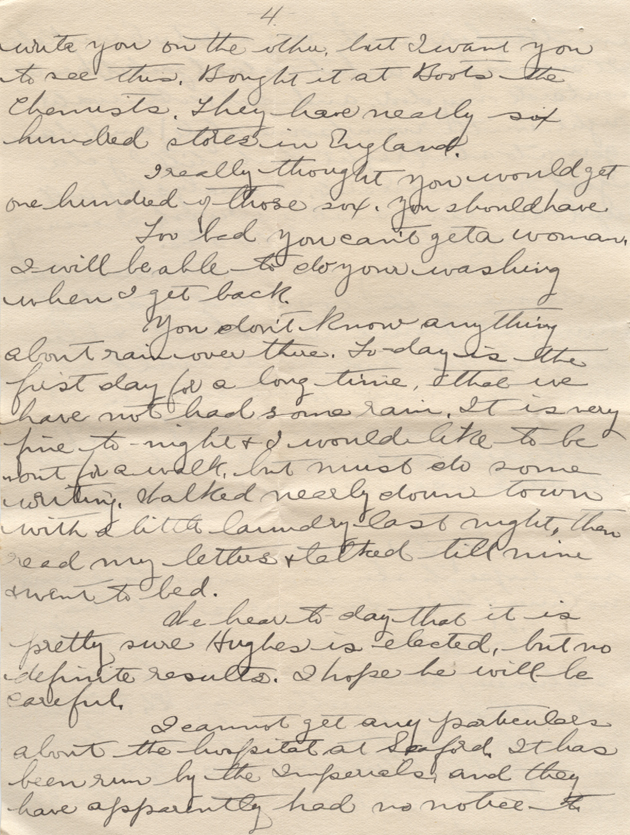 4.
write you on the other, but I want you
to see this. Bought it at Boots the
Chemists. They have nearly six
hundred stores in England.
I really thought you would get
one hundred of those sox. You should have.
Too bad you can't get a woman.
I will be able to do your washing
when I get back.
You don't know anything
about rain over there. To-day is the
first day for a long time, that we
have not had some rain. It is very
fine to-night & I would like to be
out for a walk, but must do some
writing. Walked nearly down town
with a little laundry last night, then
read my letters & talked till nine
& went to bed.
We hear to day that it is
pretty sure Hughes is elected, but no
definite results. I hope he will be
careful.
I cannot get any particulars
about the hospital at Seaford. It has
been run by the Imperials, and they
have apparently had no notice to